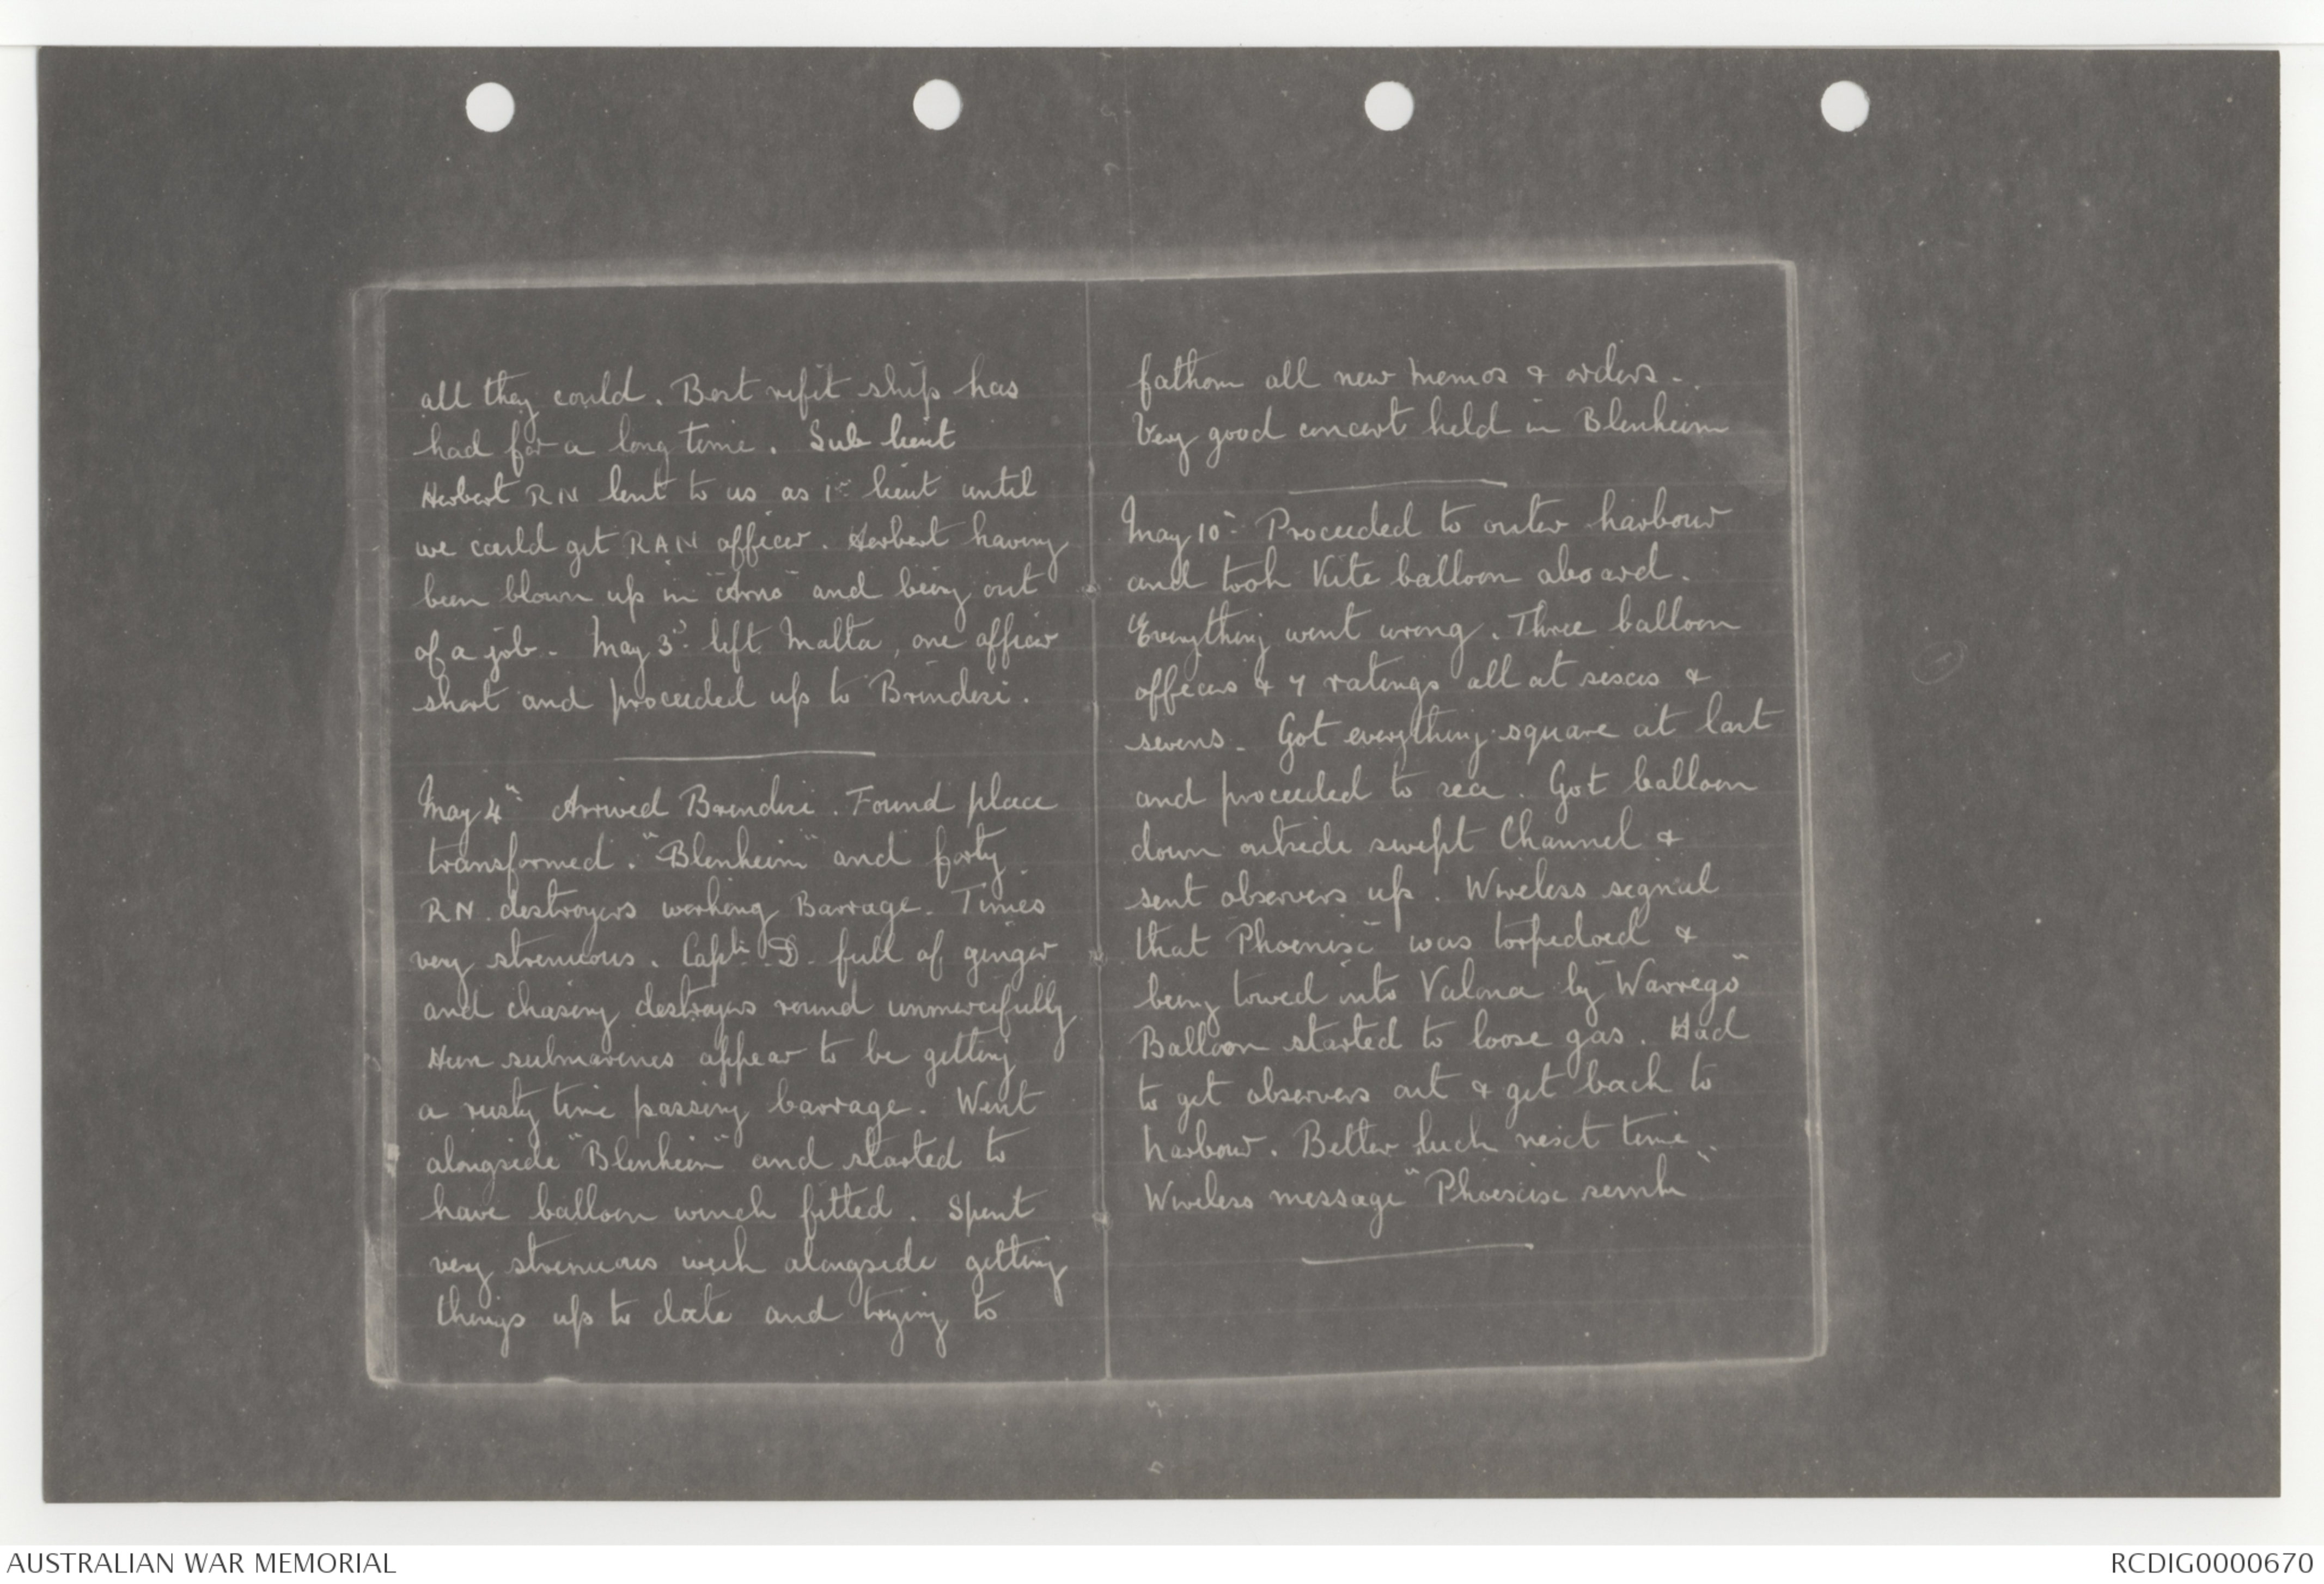 all they could. Best refit ship has
had for a long time. Sub lieut
Herbert RN lent to us as 1st lieut until
we could get RAN officer. Herbert having
been blown up in "Arno" and being out
of a job. May 3rd left Malta, one officer
short and proceeded up to Brindisi.
May 4th Arrived Brindisi. Found place
transformed. "Blenheim" and forty
RN destroyers working Barrage. Times
very strenuous. Capt. D. full of ginger
and chasing destroyers round unmercifully
Hun submarines appear to be getting
a rusty time passing barrage. Went
alongside "Blenheim" and started to
have balloon winch fitted. Spent
very strenuous week alongside getting
things up to date and trying to
fathom all new memos & orders.
Very good concert held in Blenheim
May 10th Proceeded to outer harbour
and took Kite balloon aboard.
Everything went wrong. Three balloon
officers & 7 ratings all at sixes &
sevens. Got everything square at last
and proceeded to sea. Got balloon
down outside swept Channel &
sent observers up. Wireless signal
that Phoenix" was torpedoed &
being towed into Valona by "Warrego"
Balloon started to loose gas. Had
to get observers out & get back to
harbour. Better luck next time.
Wireless message "Phoenix sunk"
AUSTRALIAN WAR MEMORIAL
RCDIG0000670